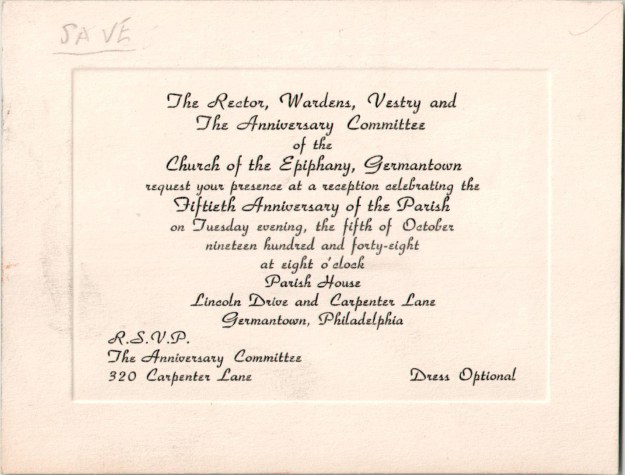 SAVE
The Rector, Wardens, Vestry and
The Anniversary Committee
of the
Church of the Epiphany, Germantown
request your presence at a reception celebrating the
Fiftieth Anniversary of the Parish
on Tuesday evening, the fifth of October
nineteen hundred and forty-eight
at eight o'clock
Parish House
Lincoln Drive and Carpenter Lane
Germantown, Philadelphia
R.S.V.P.
The Anniversary Committee
320 Carpenter Lane
Dress Optional